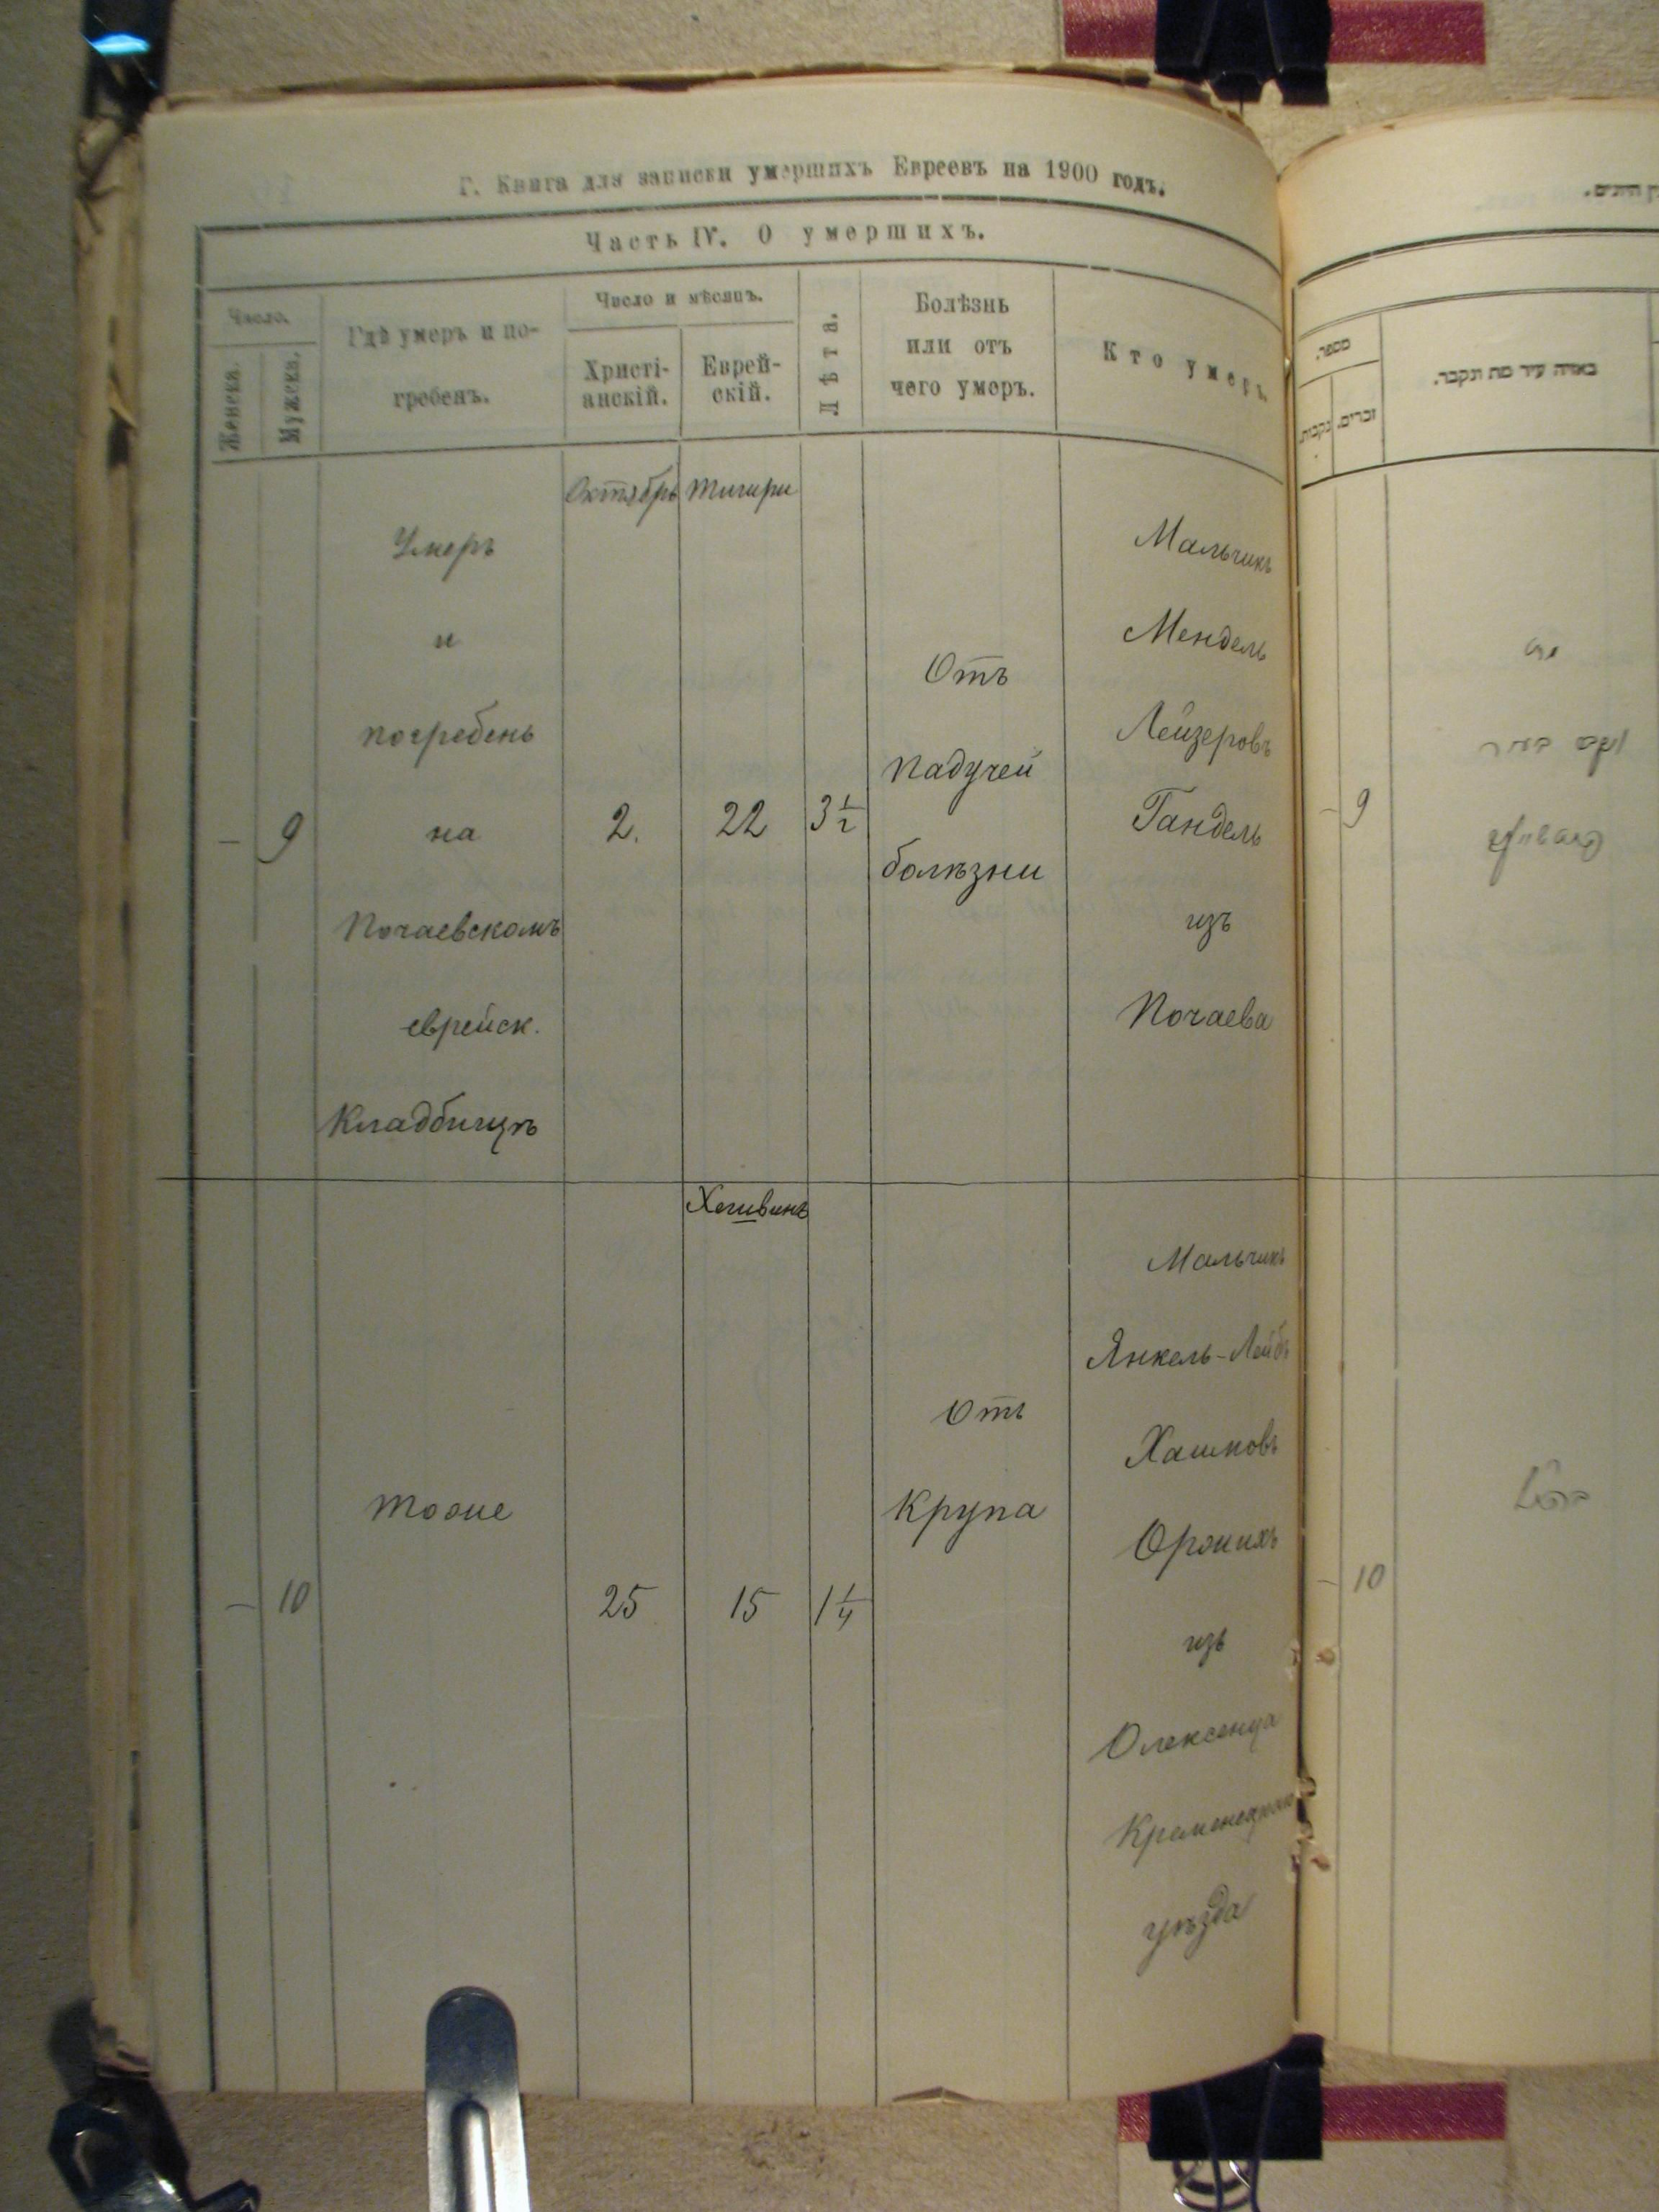 Г. Книга для записки умершихъ Евреевъ на 1900 годъ.
Часть IV. О умершихъ.
Число.
Женска.
Мужеска.
Гдѣ умеръ и по-
гребенъ.
Число и мѣсяцъ.
Христі-
анскій.
Еврей-
скій.
Лѣта.
Болѣзнь
или отъ
чего умеръ.
Кто умеръ.
Октябрь Тишри
–
9
Умеръ
и
погребенъ
на
Почаевскомъ
еврейск.
Кладбищѣ
2.
22
3 1/2
Отъ
падучей
болѣзни
Мальчикъ
Мендель
Лейзеровъ
Гандель
изъ
Почаева
Хешвинъ
–
10
тоже
25
15
1 1/4
Отъ
крупа
Мальчикъ
Янкель-Лейбъ
изъ
Олексенца
Кременецкаго
уѣзда
מספר.
זכרים.
נקבות.
באיזה עיר מת ונקבר.
– 9
– 10